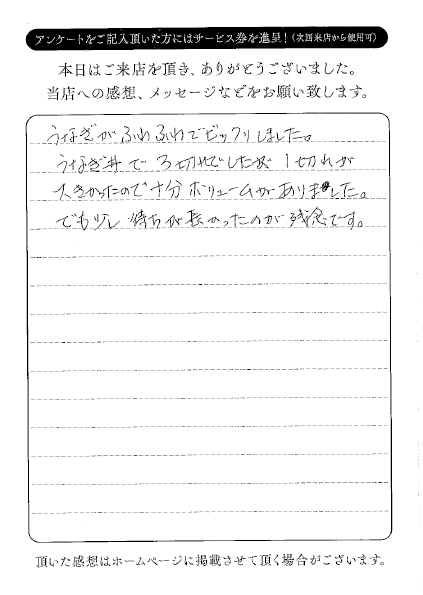 アンケートをご記入頂いた方にはサービス券を進呈!(次回来店から使用可)
本日はご来店を頂き、ありがとうございました。
当店への感想、メッセージなどをお願い致します。
うなぎがふわふわでビックリしました。
うなぎ丼で3切れでしたが1切れが
大きかったので十分ボリュームがありました。
でも少し待ちが長かったのが残念です。
頂いた感想はホームページに掲載させて頂く場合がございます。